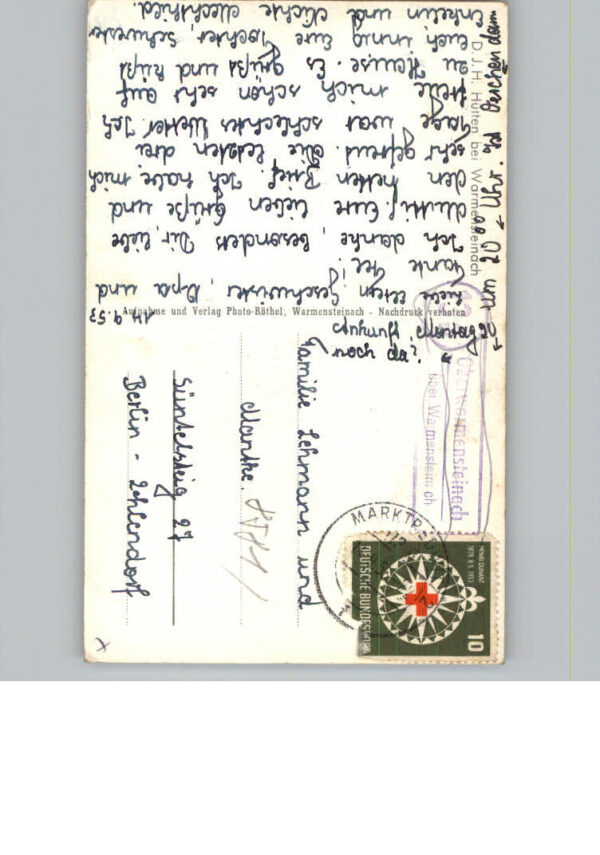 D.J.H. Hütten bei Warmensteinach
14.9.53
Liebe Eltern, Geschwister, Opa und
Tante
Ich danke, besonders Dir, liebe
Mutti, f. Eure lieben Grüße und
den netten Brief. Ich habe mich
sehr gefreut. Die letzten drei
Tage war schlechtes Wetter. Ich
freue mich schon sehr auf
zu Hause. Es grüßt und küßt
Euch innig Eure Tochter, Schwester
Enkelin und Nichte Mechthild.
um 20 00 Uhr. ist
noch da?
Aufnahme und Verlag Photo-Röthel, Warmensteinach - Nachdruck verboten
Oberwarmensteinach
über Warmensteinach
MARKTRED
HENRI DUNANT
1828 8.5. 1953
DEUTSCHE BUNDESPOST
10
Familie Lehmann und
Mantke.
Süntelsteig 27
Berlin - Zehlendorf